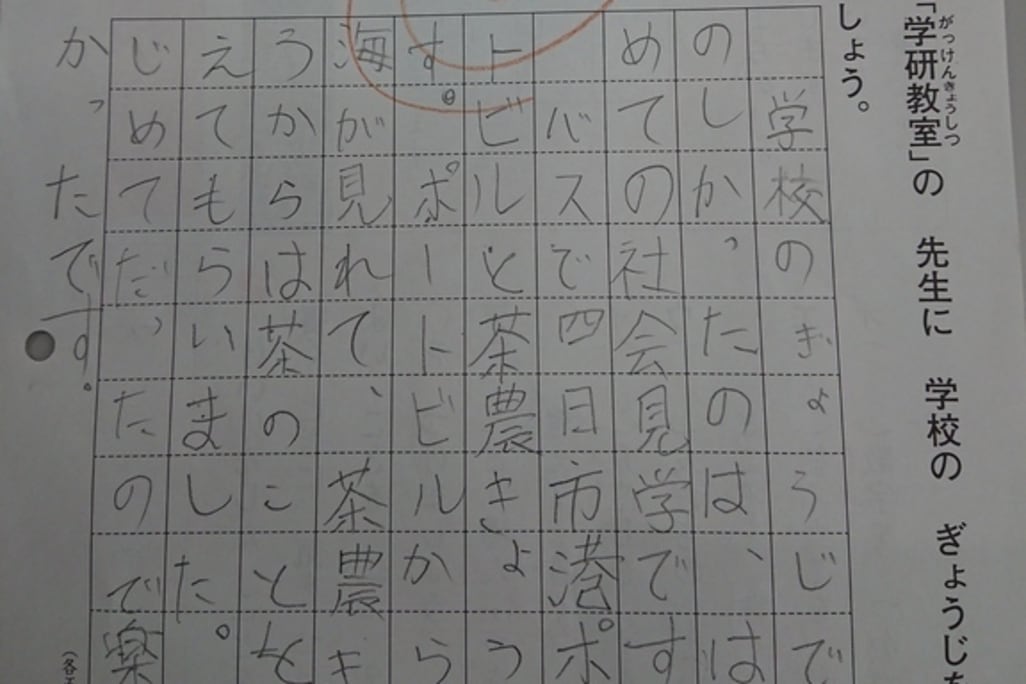 がっけんきょうしつ
「学研教室」の 先生に 学校の ぎょうじを
しょう。
学校のぎょうじで
のしかったのは、は
めての社会見学です
バスで四日市港ポ
トビルと茶農きょう
す。ポートビルから
海が見れて、茶農キ
うからは茶のことを
えてもらいました。
じめてだったので楽
かったです。
(各